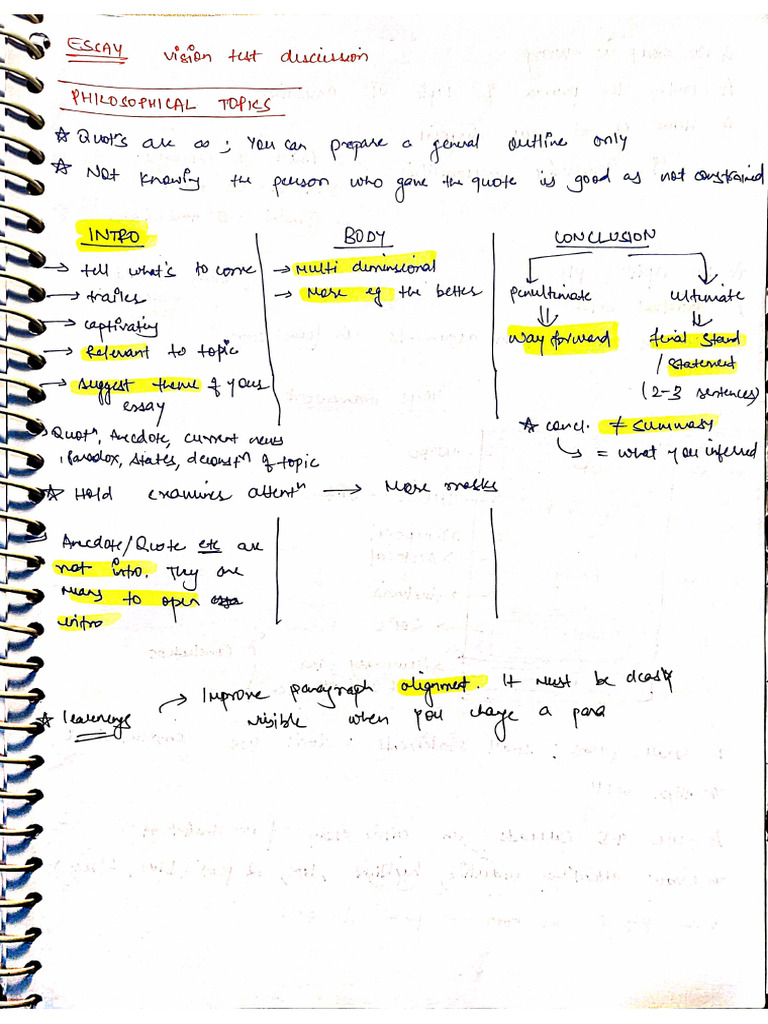 ESSAY vision test discussion
PHILOSOPHICAL TOPICS
☆ Quot's are as ; You can prepare a general outline only
☆ Not knowing the person who gave the quote is good as not constrained
INTRO
→ tell what's to come
→ trailer
→ captivating
→ Relevant to topic
→ suggest theme of your
essay
Quotⁿ, Anecdote, current news
, Paradox, States, deconstⁿ of topic
☆ Hold examiners attentⁿ → More marks
→ Anecdote/Quote etc are
not intro. They are
means to open
intro
BODY
→ Multi dimensional
→ More eg the better
CONCLUSION
penultimate
⇓
way forward
ultimate
⇓
final stand
/ statement
(2-3 sentences)
☆ concl. ≠ summary
↳ = what you inferred
☆ learnings → Improve paragraph alignment. It must be clearly
visible when you change a para